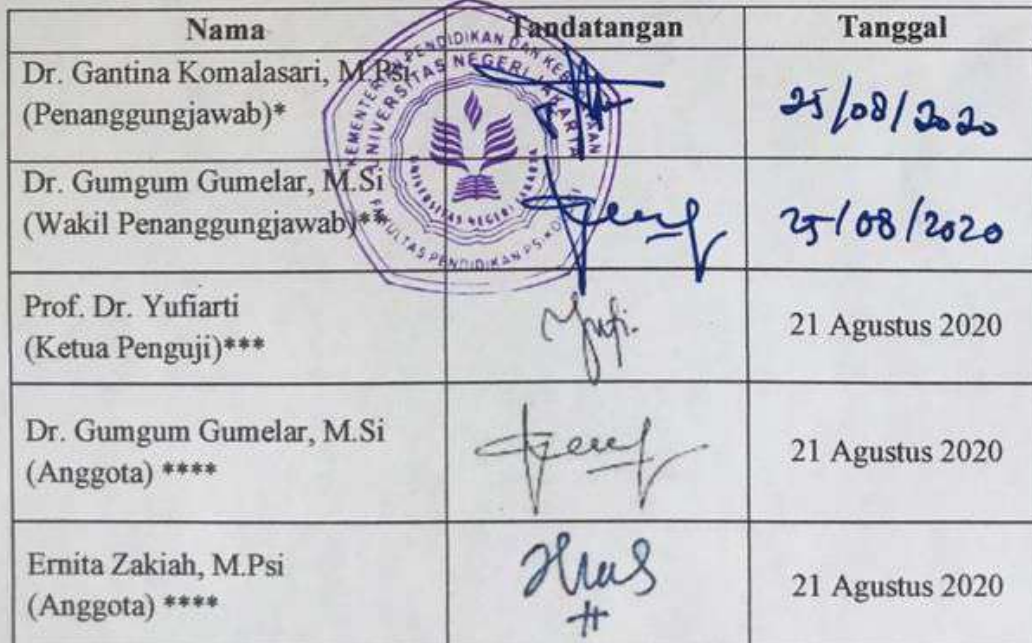 Nama Tandatangan Tanggal
Dr. Gantina Komalasari, M.Psi
(Penanggungjawab)* 25/08/2020
Dr. Gumgum Gumelar, M.Si
(Wakil Penanggungjawab)** 25/08/2020
Prof. Dr. Yufiarti
(Ketua Penguji)*** 21 Agustus 2020
Dr. Gumgum Gumelar, M.Si
(Anggota) **** 21 Agustus 2020
Ernita Zakiah, M.Psi
(Anggota) **** 21 Agustus 2020
KEMENTERIAN PENDIDIKAN DAN KEBUDAYAAN
UNIVERSITAS NEGERI JAKARTA
UNIVERSITAS NEGERI JAKARTA
FAKULTAS PENDIDIKAN PSIKO